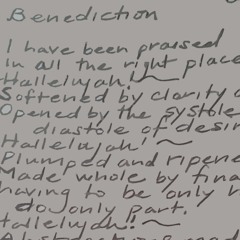 Benediction
I have been praised
In all the right place
Hallelujah!
Softened by clarity
Opened by the systole
diastole of desir
Hallelujah!
Plumped and ripene
Made whole by fina
having to be only
do only part.
Hallelujah!!